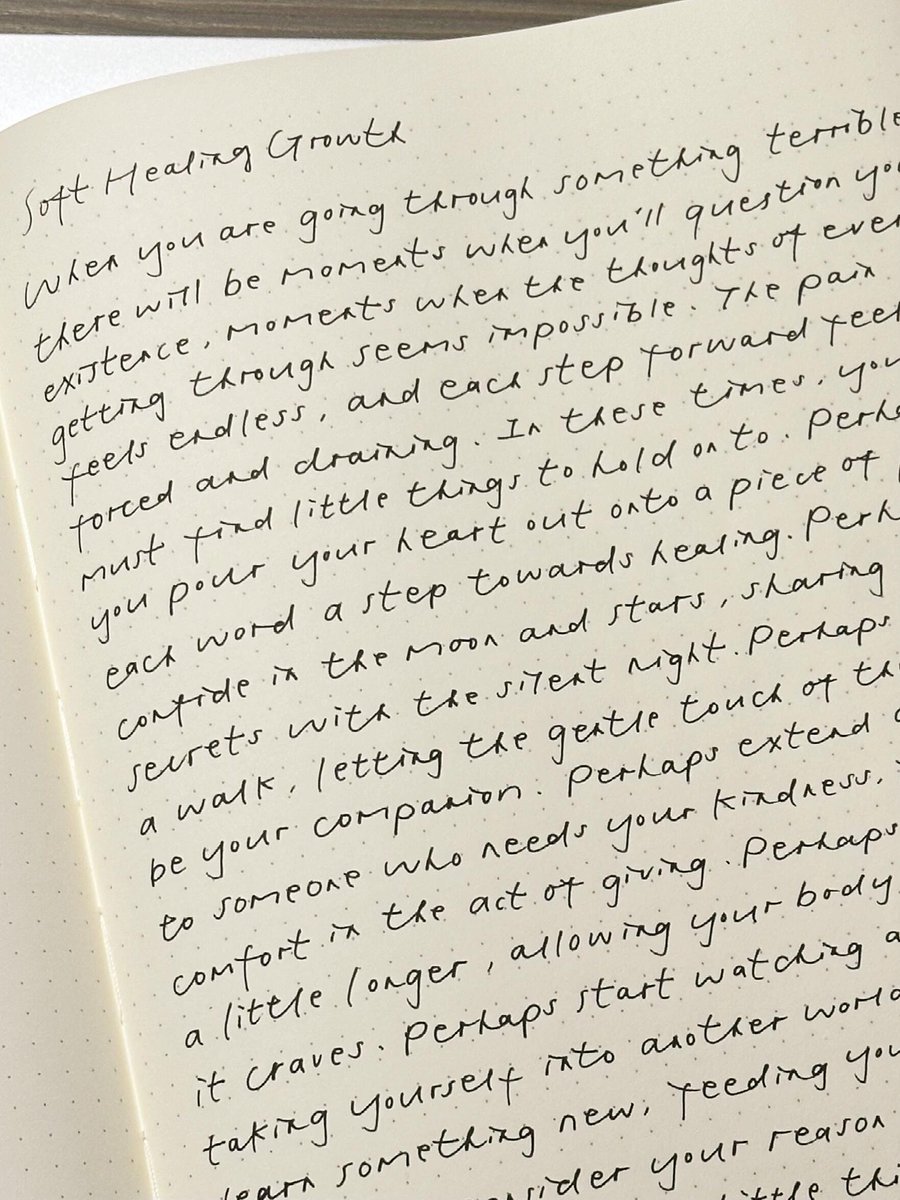 Soft Healing Growth
When you are going through something terrible
there will be moments when you'll question
existence, moments when the thoughts of
getting through seems impossible. The pain
feels endless, and each step forward
forced and draining. In these times, you
must find little things to hold on to.
you pour your heart out onto a piece of
each word a step towards healing.
confide in the moon and stars, sharing
secrets with the silent night. Perhaps
a walk, letting the gentle touch of
be your companion. Perhaps extend
to someone who needs your kindness,
comfort in the act of giving. Perhaps
a little longer, allowing your body
it craves. Perhaps start watching
taking yourself into another world
learn something new, feeding
your reason